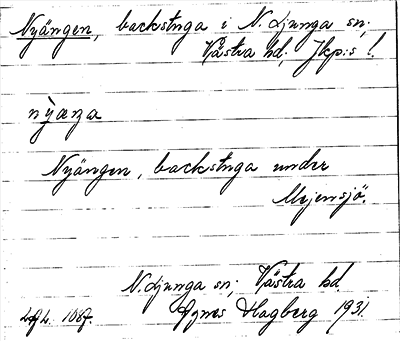 Nyängen, backstuga i N. Ljunga sn;
Västra hd; Jkp:s l.
Nyängen, backstuga under
Mejensjö.
N. Ljunga sn; Västra hd
1087. Agnes Hagberg 1931.